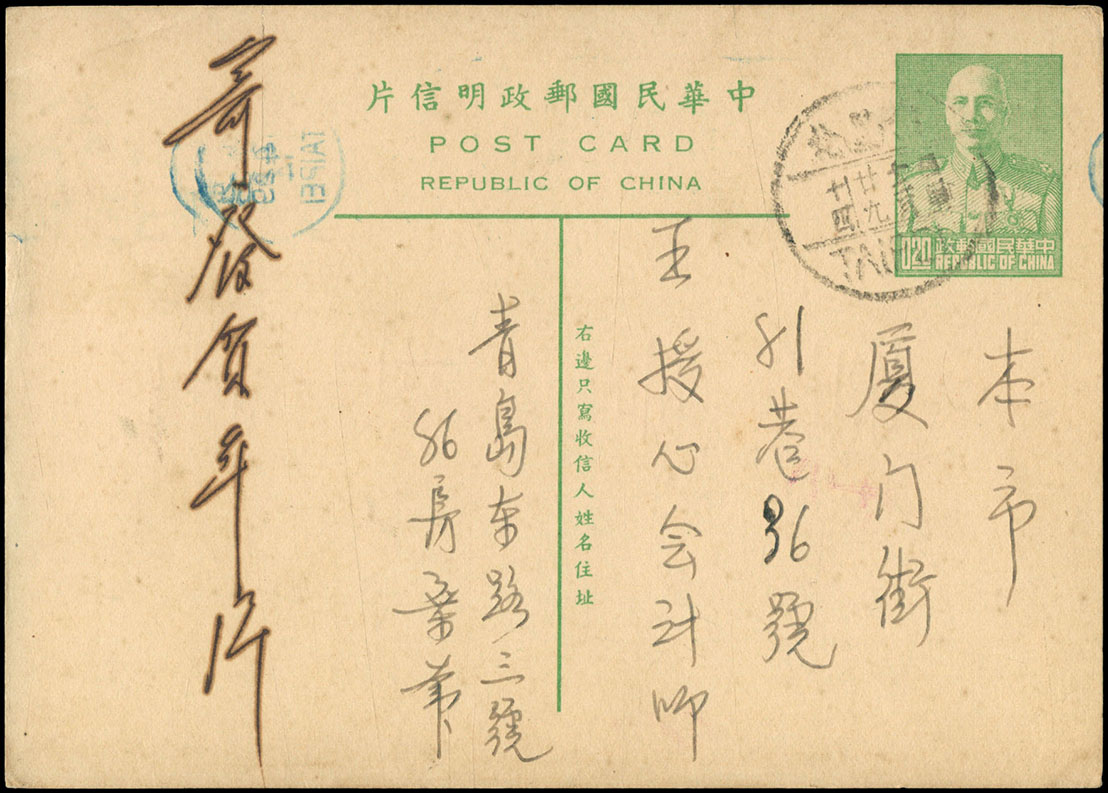 中華民國郵政明信片
POST CARD
REPUBLIC OF CHINA
中華民國郵政
0.20 REPUBLIC OF CHINA
廿九
十四
本市
厦门街
81巷36號
王授心会计师
右邊只寫收信人姓名住址
青島东路三號
86房
寄發賀年片
TAIPEI